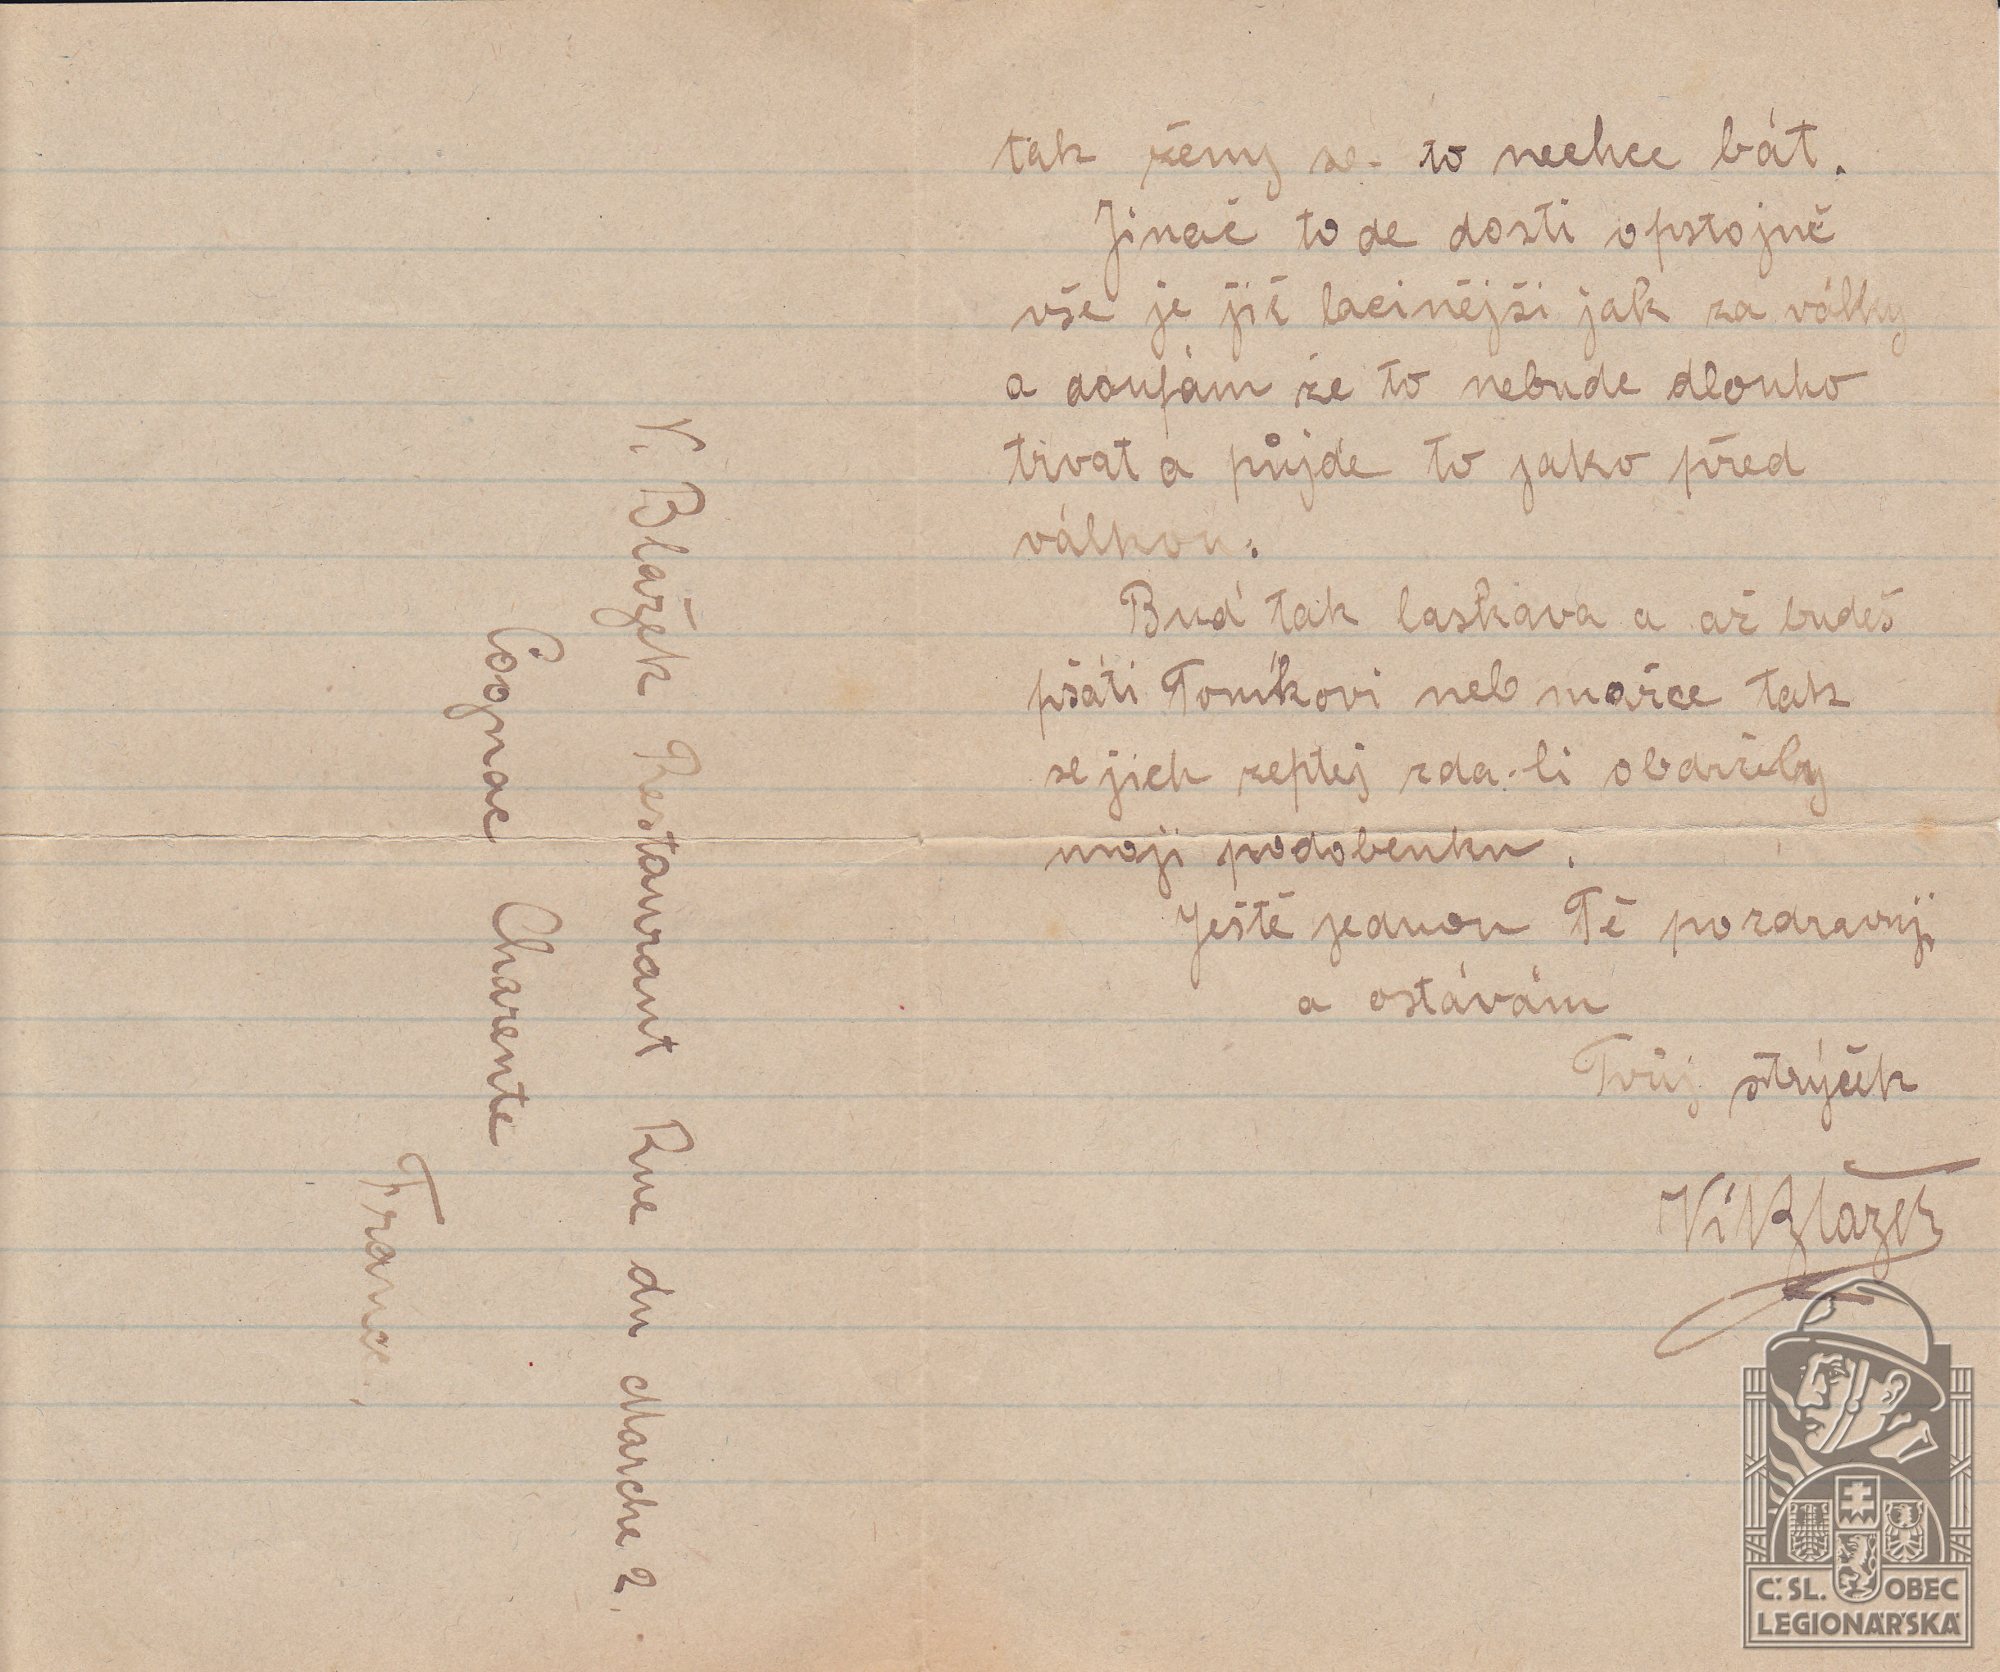 tak žémy se to nechce bát.
Jinač to de dosti opstojně
vše je jič lacinějši jak za války
a doufám že to nebude dlouho
trvat a půjde to jako před
válkou.
Buď tak laskava a až budeš
psáti Toníkovi neb mařce tak
se jich zeptej zda-li obdržely
moji podobenku.
Ještě jednou Tě pozdravuji
a ostávám
Tvůj strýček
V. Blažek
V. Blažek Restaurant Rue du Marche 2.
Cognac Charente
France.
Č.SL. OBEC
LEGIONÁŘSKÁ